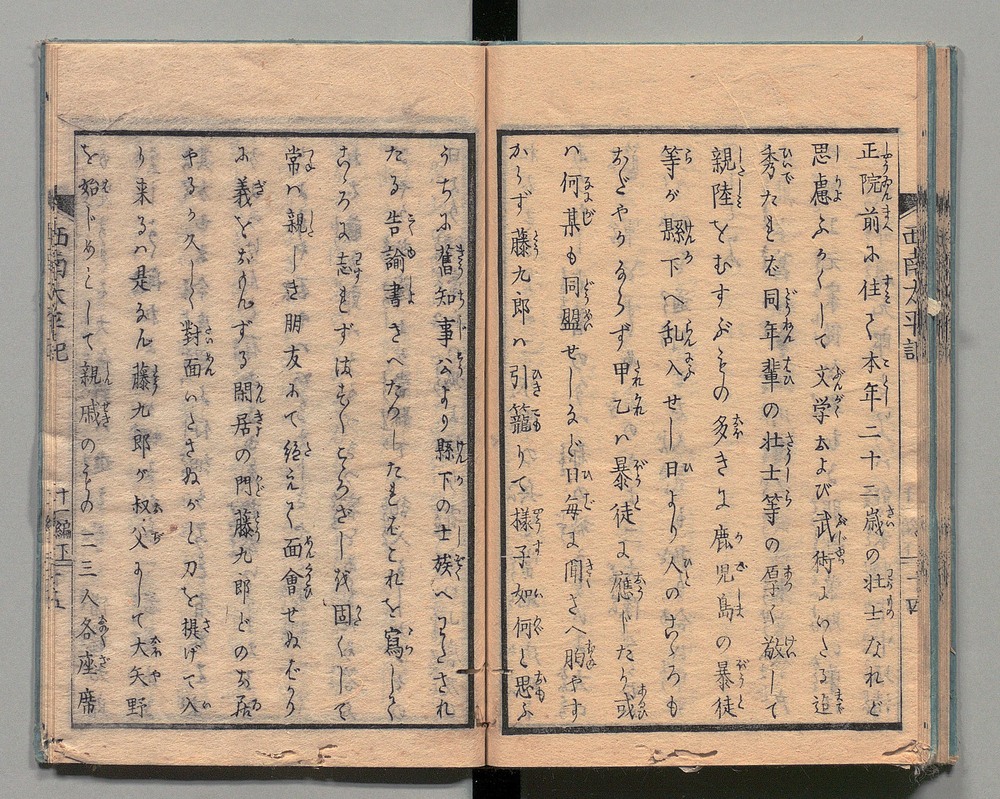 正院前に住て本年二十三歳の壮士なれど
思慮ふかくして文学および武術にいたる迄
秀たれバ同年輩の壮士等の厚く敬して
親睦をむすぶものゝ多きに鹿児島の暴徒
等が縣下へ乱入せし日より人のこゝろも
おだやかならず甲乙ハ暴徒に應じたり或
ハ何某も同盟せしなど日毎に聞さへ胸やす
からず藤九郎ハ引籠りて様子如何と思ふ
うちに舊知事公より縣下の士族へ下され
たる告諭書さへたまひしたれバこれを寫しとく
こゝろに志れずはまたくこゝろざし越固くして
常ハ親しき朋友にて絶えて面會せぬばかり
に義をおもんずる閑居の門藤九郎どのお居
やるか久しく對面いたさぬがと刀を提げて入
り来るハ是なん藤九郎が叔父にして大矢野
を始じめとして親戚のものゝ二三人各座席
西南太平記
十一編下